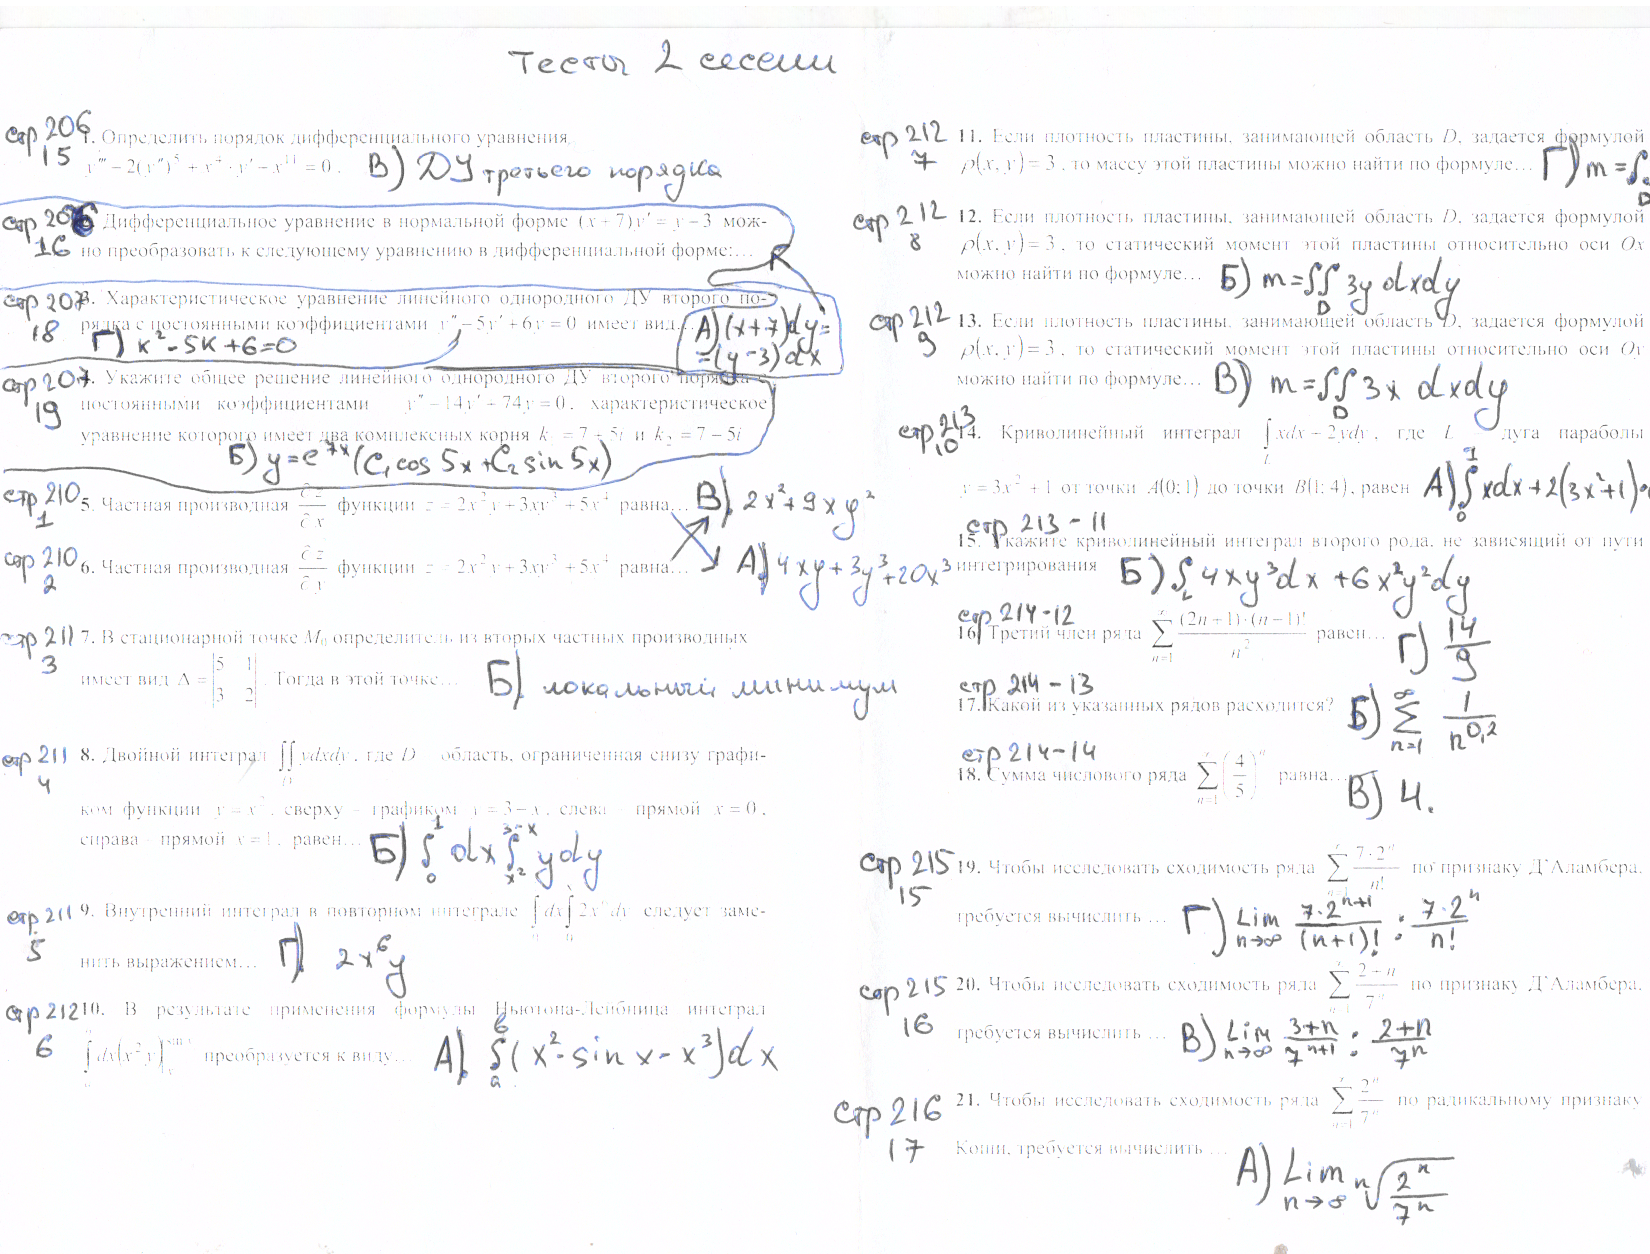 Тесты 2 сессии
стр 206
15
1. Определить порядок дифференциального уравнения,
y''' − 2(y'')⁵ + x⁴ · y' − x¹¹ = 0 .
В) ДУ третьего порядка
стр 206
16
Дифференциальное уравнение в нормальной форме (x + 7)y' = y − 3 мож-
но преобразовать к следующему уравнению в дифференциальной форме:…
А) (x+7)dy=
=(y-3)dx
стр 207
18
3. Характеристическое уравнение линейного однородного ДУ второго по-
рядка с постоянными коэффициентами y'' − 5y' + 6y = 0 имеет вид…
Г) к² - 5к + 6 = 0
стр 207
19
4. Укажите общее решение линейного однородного ДУ второго порядка с
постоянными коэффициентами y'' − 14y' + 74y = 0, характеристическое
уравнение которого имеет два комплексных корня k = 7 + 5i и k₂ = 7 − 5i
Б) y = e⁷ˣ (C₁ cos 5x + C₂ sin 5x)
стр 210
1
5. Частная производная ∂z/∂x функции z = 2x²y + 3xy³ + 5x⁴ равна…
В) 2x² + 9xy²
стр 210
2
6. Частная производная ∂z/∂y функции z = 2x²y + 3xy³ + 5x⁴ равна…
А) 4xy + 3y³ + 20x³
стр 211
3
7. В стационарной точке M₀ определитель из вторых частных производных
имеет вид Δ = |5 1; 3 2| . Тогда в этой точке…
Б) локальный минимум
стр 211
4
8. Двойной интеграл ∬ ydxdy, где D область, ограниченная снизу графи-
D
ком функции y = x², сверху – графиком y = 3 − x, слева – прямой x = 0,
справа – прямой x = 1, равен…
Б) ∫₀¹ dx ∫ₓ²³⁻ˣ y dy
стр 211
5
9. Внутренний интеграл в повторном интеграле ∫dx∫2x⁶dy следует заме-
нить выражением…
Г) 2x⁶y
стр 212
6
10. В результате применения формулы Ньютона-Лейбница интеграл
∫dx(x²y)|ˢⁱⁿ ˣ преобразуется к виду…
А) ∫ₐᵇ (x² · sin x − x³)dx
стр 212
7
11. Если плотность пластины, занимающей область D, задается формулой
ρ(x, y) = 3 , то массу этой пластины можно найти по формуле…
Г) m = ∫
D
стр 212
8
12. Если плотность пластины, занимающей область D, задается формулой
ρ(x, y) = 3 , то статический момент этой пластины относительно оси Ox
можно найти по формуле…
Б) m = ∬ 3y dxdy
D
стр 212
9
13. Если плотность пластины, занимающей область D, задается формулой
ρ(x, y) = 3 , то статический момент этой пластины относительно оси Oy
можно найти по формуле…
В) m = ∬ 3x dxdy
D
стр 213
10
14. Криволинейный интеграл ∫ xdx − 2ydy, где L дуга параболы
L
y = 3x² + 1 от точки A(0; 1) до точки B(1; 4), равен
А) ∫₀¹ xdx + 2(3x² + 1)
стр 213 - 11
15. Укажите криволинейный интеграл второго рода, не зависящий от пути
интегрирования
Б) ∫ 4xy³dx + 6x²y²dy
L
стр 214-12
16. Третий член ряда ∑ (2n + 1) · (n − 1)! / n² равен…
n=1
Г) 14/9
стр 214 - 13
17. Какой из указанных рядов расходится?
Б) ∑ 1/n⁰,²
n=1
стр 214-14
18. Сумма числового ряда ∑ (4/5)ⁿ равна…
n=1
В) 4.
стр 215
15
19. Чтобы исследовать сходимость ряда ∑ 7 · 2ⁿ / n! по признаку Д'Аламбера,
требуется вычислить …
Г) Lim n→∞ 7·2ⁿ⁺¹/(n+1)! : 7·2ⁿ/n!
стр 215
16
20. Чтобы исследовать сходимость ряда ∑ 2 + n / 7ⁿ по признаку Д'Аламбера,
требуется вычислить …
В) Lim n→∞ 3+n/7ⁿ⁺¹ : 2+n/7ⁿ
стр 216
17
21. Чтобы исследовать сходимость ряда ∑ 2ⁿ / 7ⁿ по радикальному признаку
Коши, требуется вычислить …
А) Lim n→∞ ⁿ√(2ⁿ/7ⁿ)